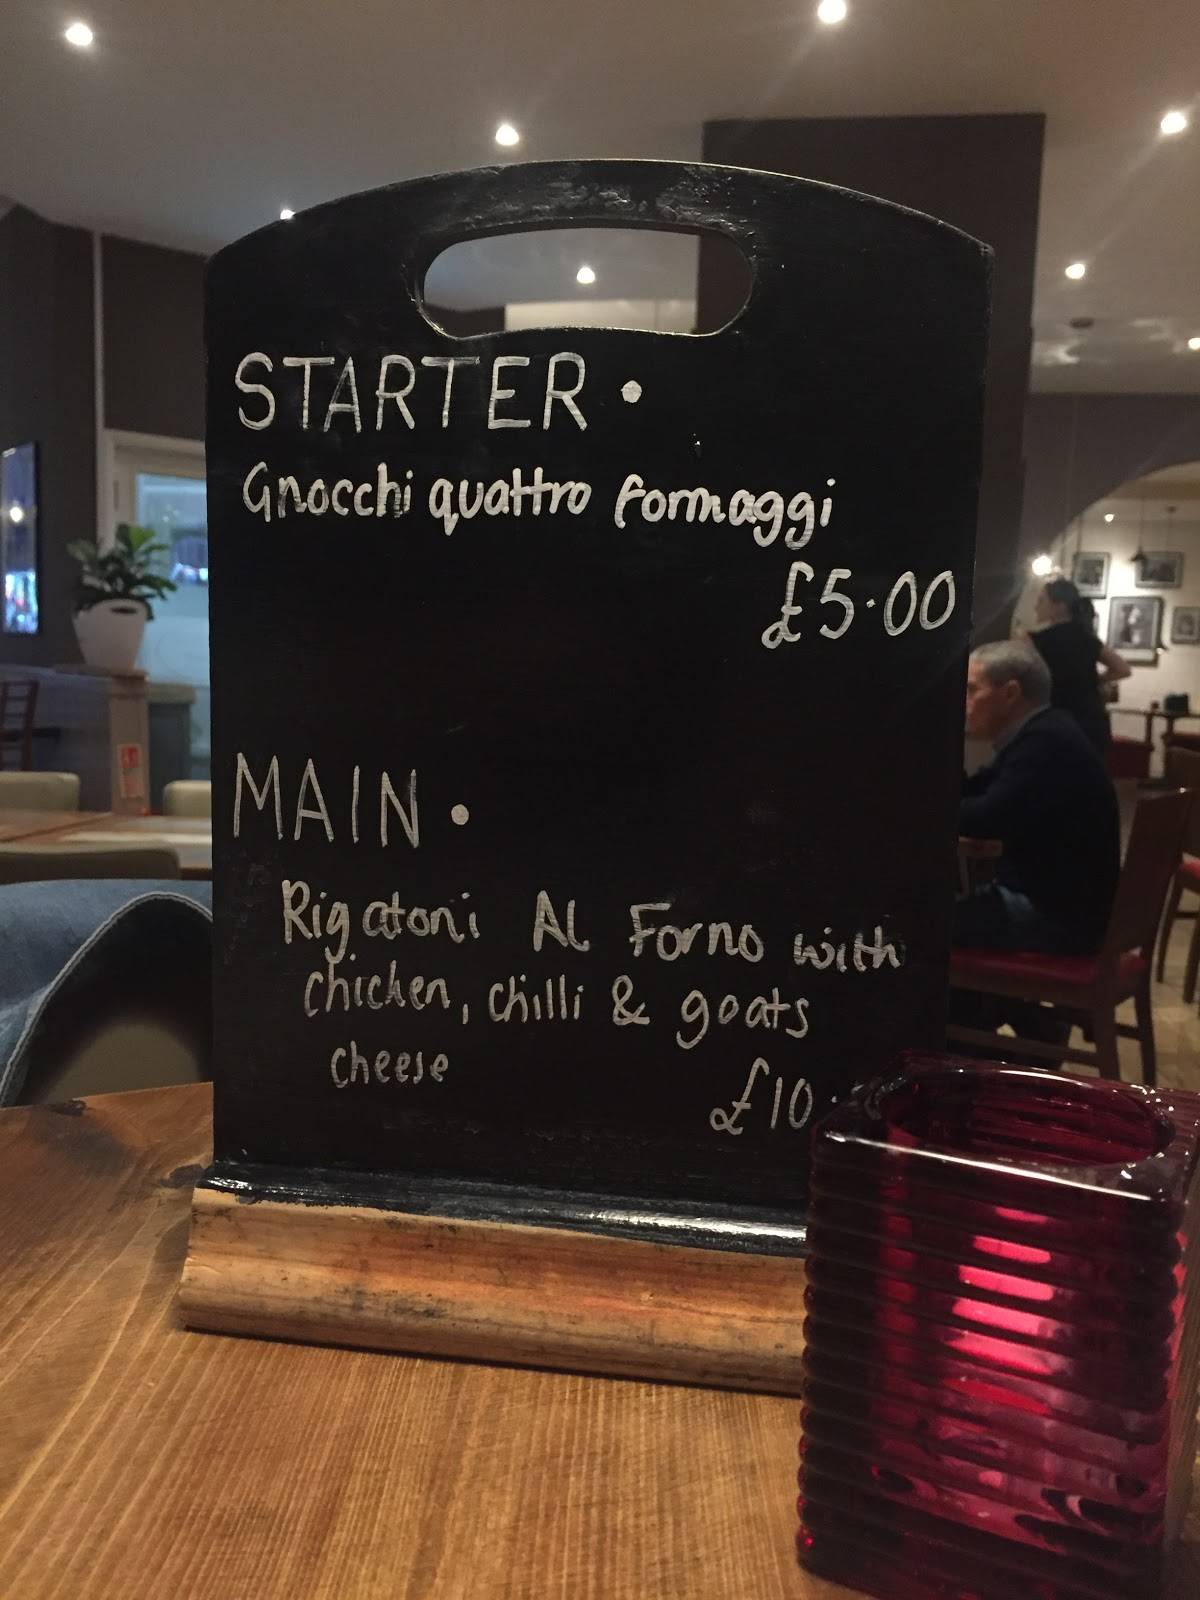 STARTER •
Gnocchi quattro formaggi
£5.00
MAIN •
Rigatoni Al Forno with
chicken, chilli & goats
cheese
£10.